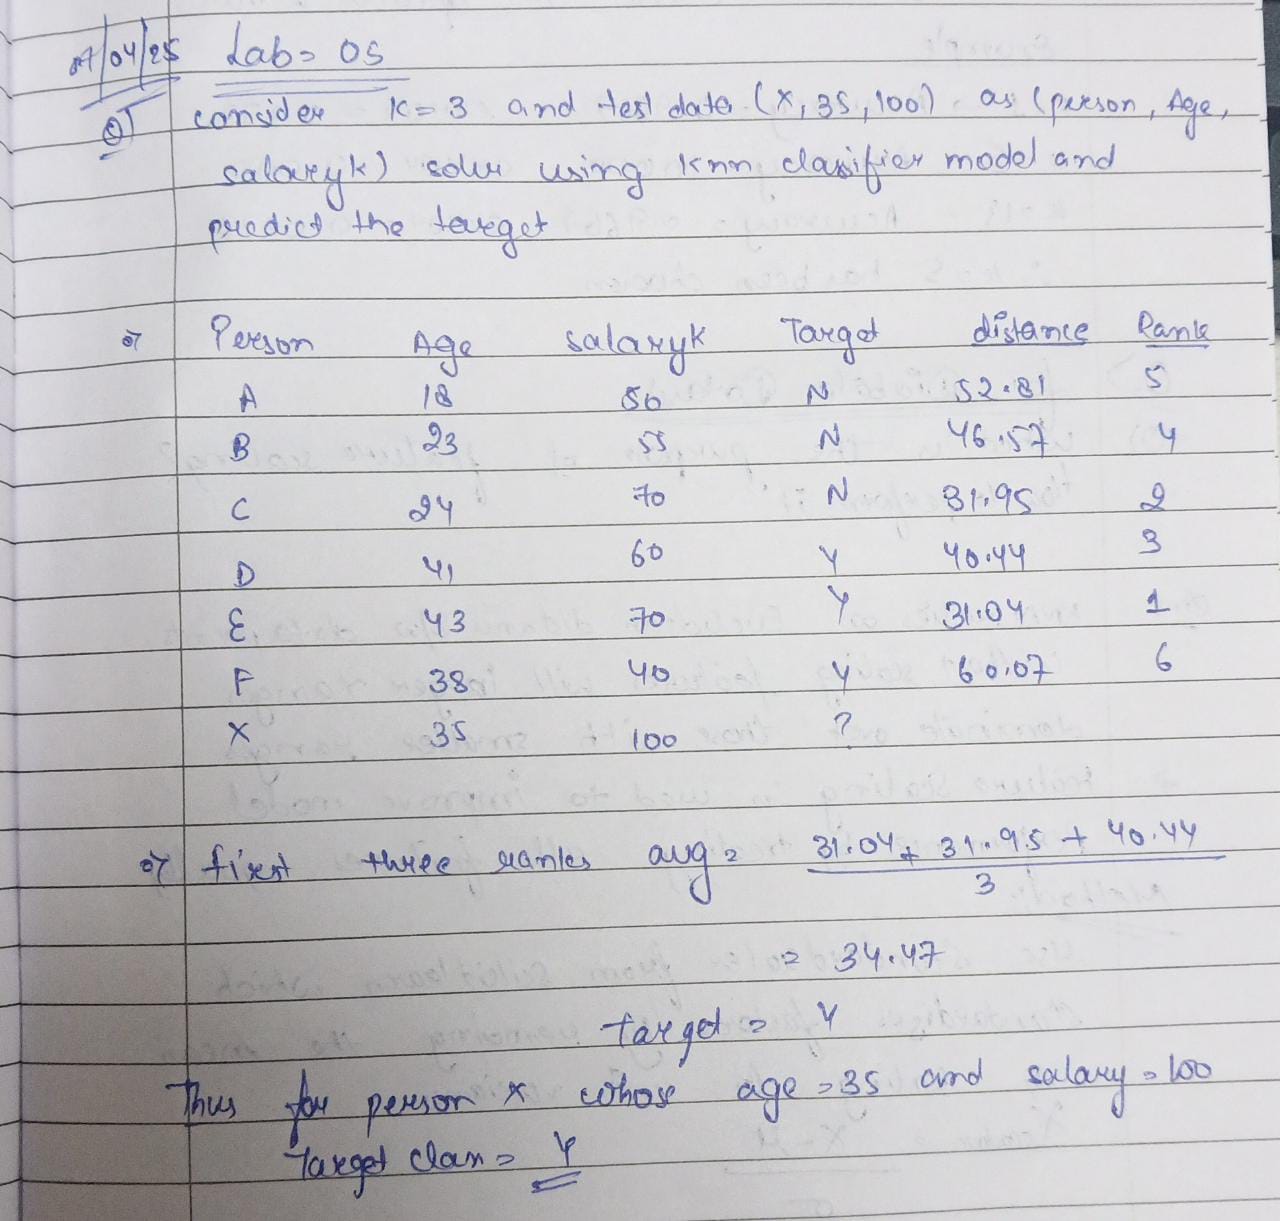 07/04/25 Lab = 05
Q) consider K=3 and test data (X, 35, 100) as (person, Age,
salaryk) solve using Knn clasifier model and
predict the target
Person Age salaryk Target distance Rank
A 18 50 N 52.81 5
B 23 55 N 46.57 4
C 24 70 N 31.95 2
D 41 60 Y 40.44 3
E 43 70 Y 31.04 1
F 38 40 Y 60.07 6
X 35 100 ?
first three ranks avg = 31.04 + 31.95 + 40.44
3
= 34.47
target = Y
Thus for person X whose age = 35 and salary = 100
Target class = Y